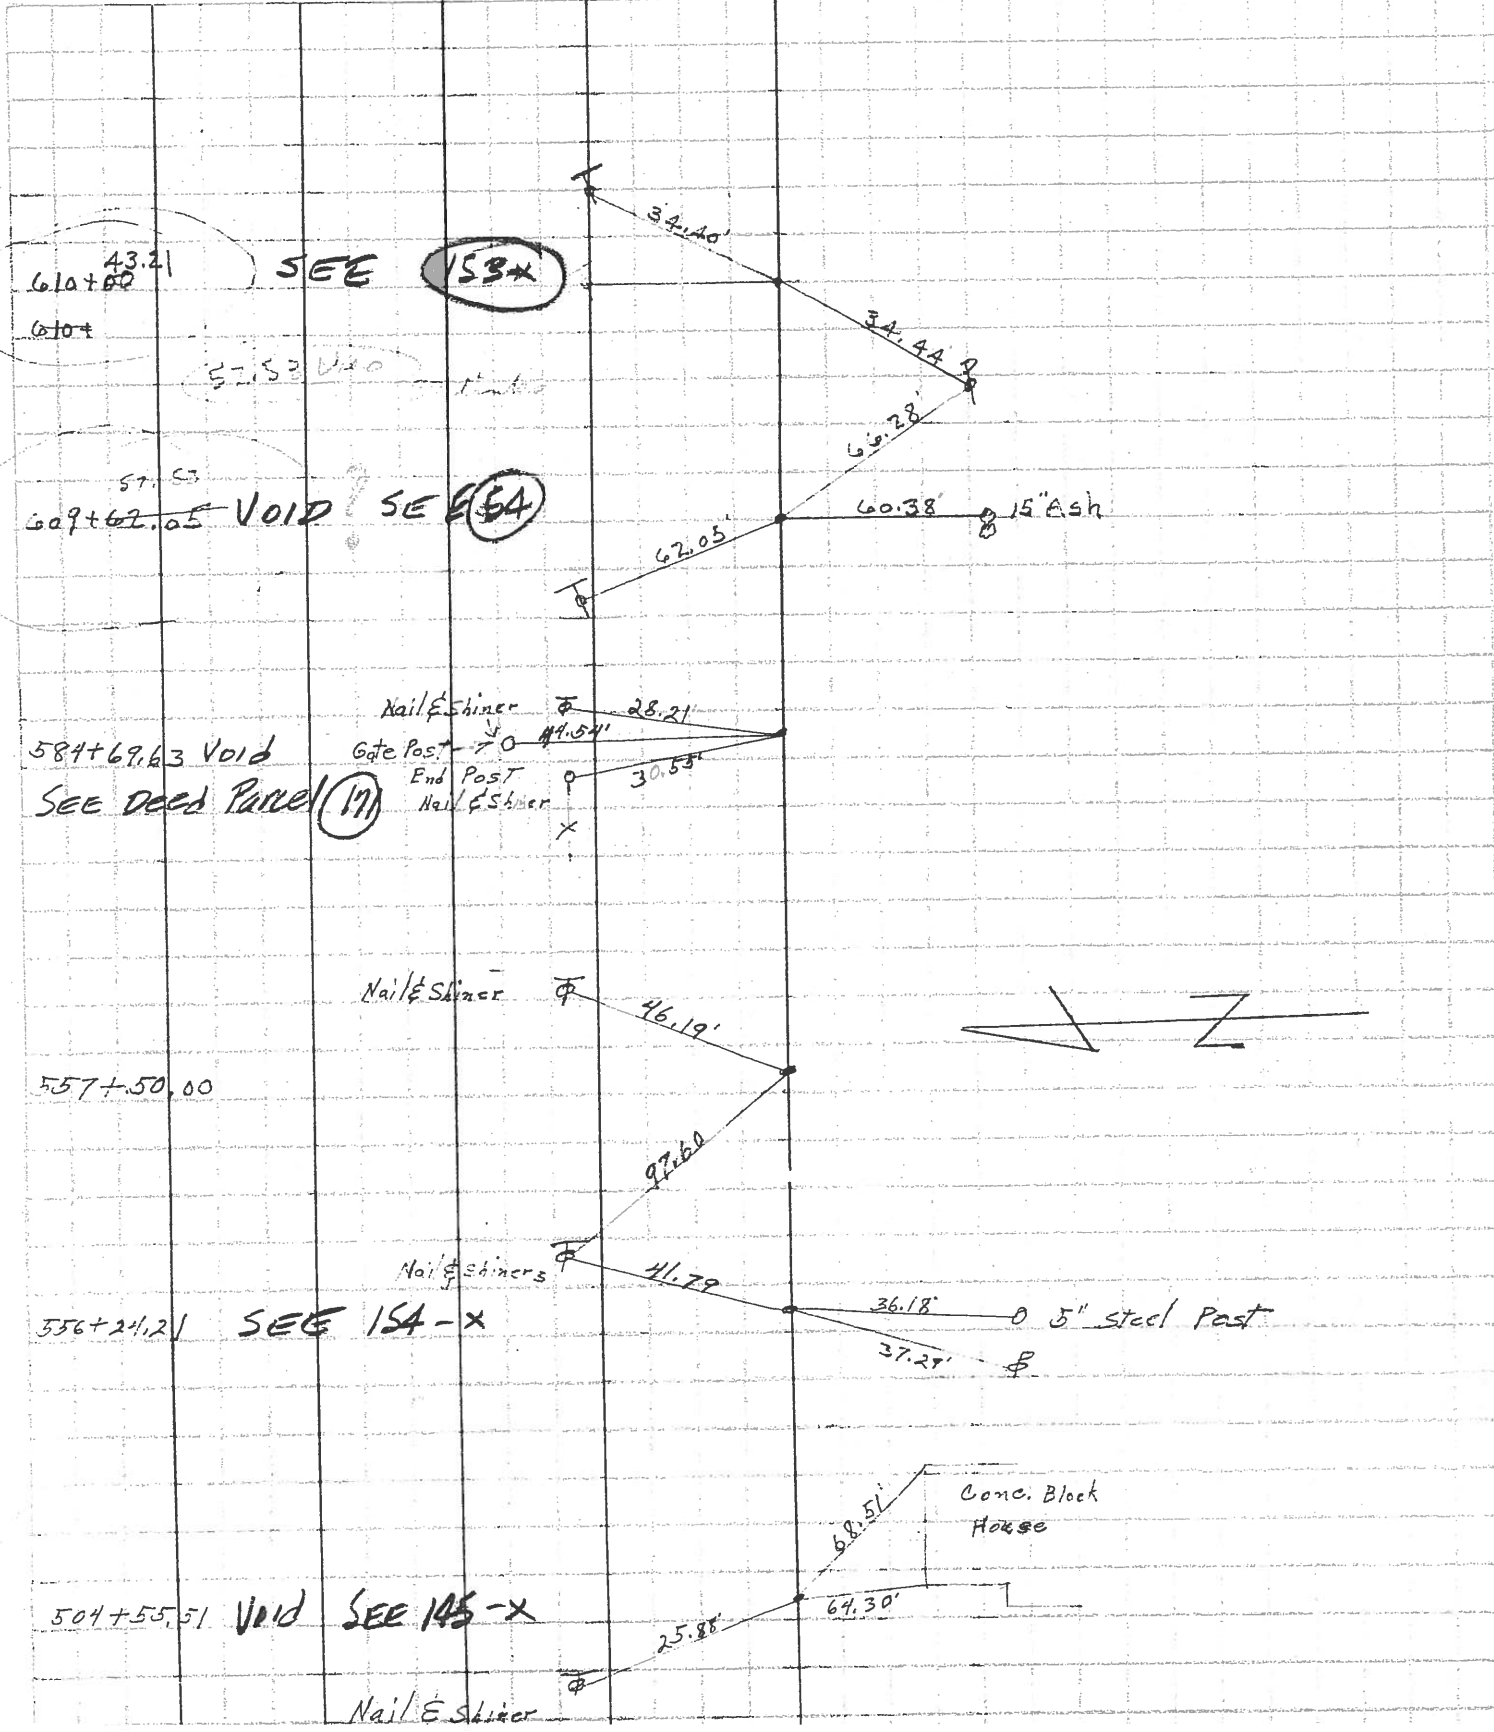 34.40'
43.21
610+00 SEE 153-x
610+
34.44'
57.53 Void
66.28'
57.53
609+62.05 VOID ? SEE 54
60.38' 15" Ash
62.05'
Nail & Shiner 28.21'
584+69.63 Void Gate Post 44.54'
End Post 30.55'
SEE Deed Parcel 171 Nail & Shiner
Nail & Shiner 46.19'
N
557+50.00
97.60
Nail & Shiners 41.79
556+24.21 SEE 154-x 36.18' 5" Steel Post
37.29'
68.51' Conc. Block
House
504+55.51 Void SEE 145-x 64.30'
25.88'
Nail & Shiner